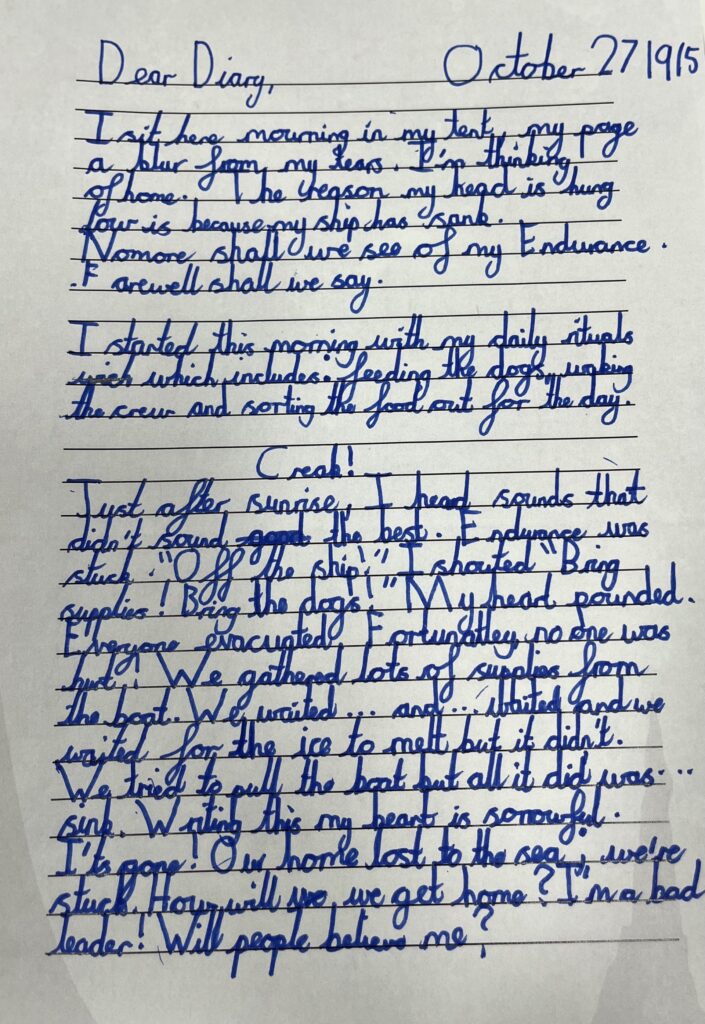 Dear Diary, October 27 1915
I sit here mourning in my tent, my page
a blur from my tears. I'm thinking
of home. The reason my head is hung
low is because my ship has sank.
Nomore shall we see of my Endurance.
.Farewell shall we say.
I started this morning with my daily rituals
wich which includes: feeding the dogs, waking
the crew and sorting the food out for the day.
Creak!
Just after sunrise, I heard sounds that
didn't sound good the best. Endurance was
stuck. "Off the ship!" I shouted "Bring
supplies! Bring the dogs!" My heart pounded.
Everyone evacuated. Fortunatley, no one was
hurt! We gathered lots of supplies from
the boat. We waited... and... waited and we
waited for the ice to melt but it didn't.
We tried to pull the boat but all it did was...
sink. Writing this my heart is sorrowful.
I'ts gone! Our home lost to the sea; we're
stuck. How will we get home? I'm a bad
leader! Will people believe me?